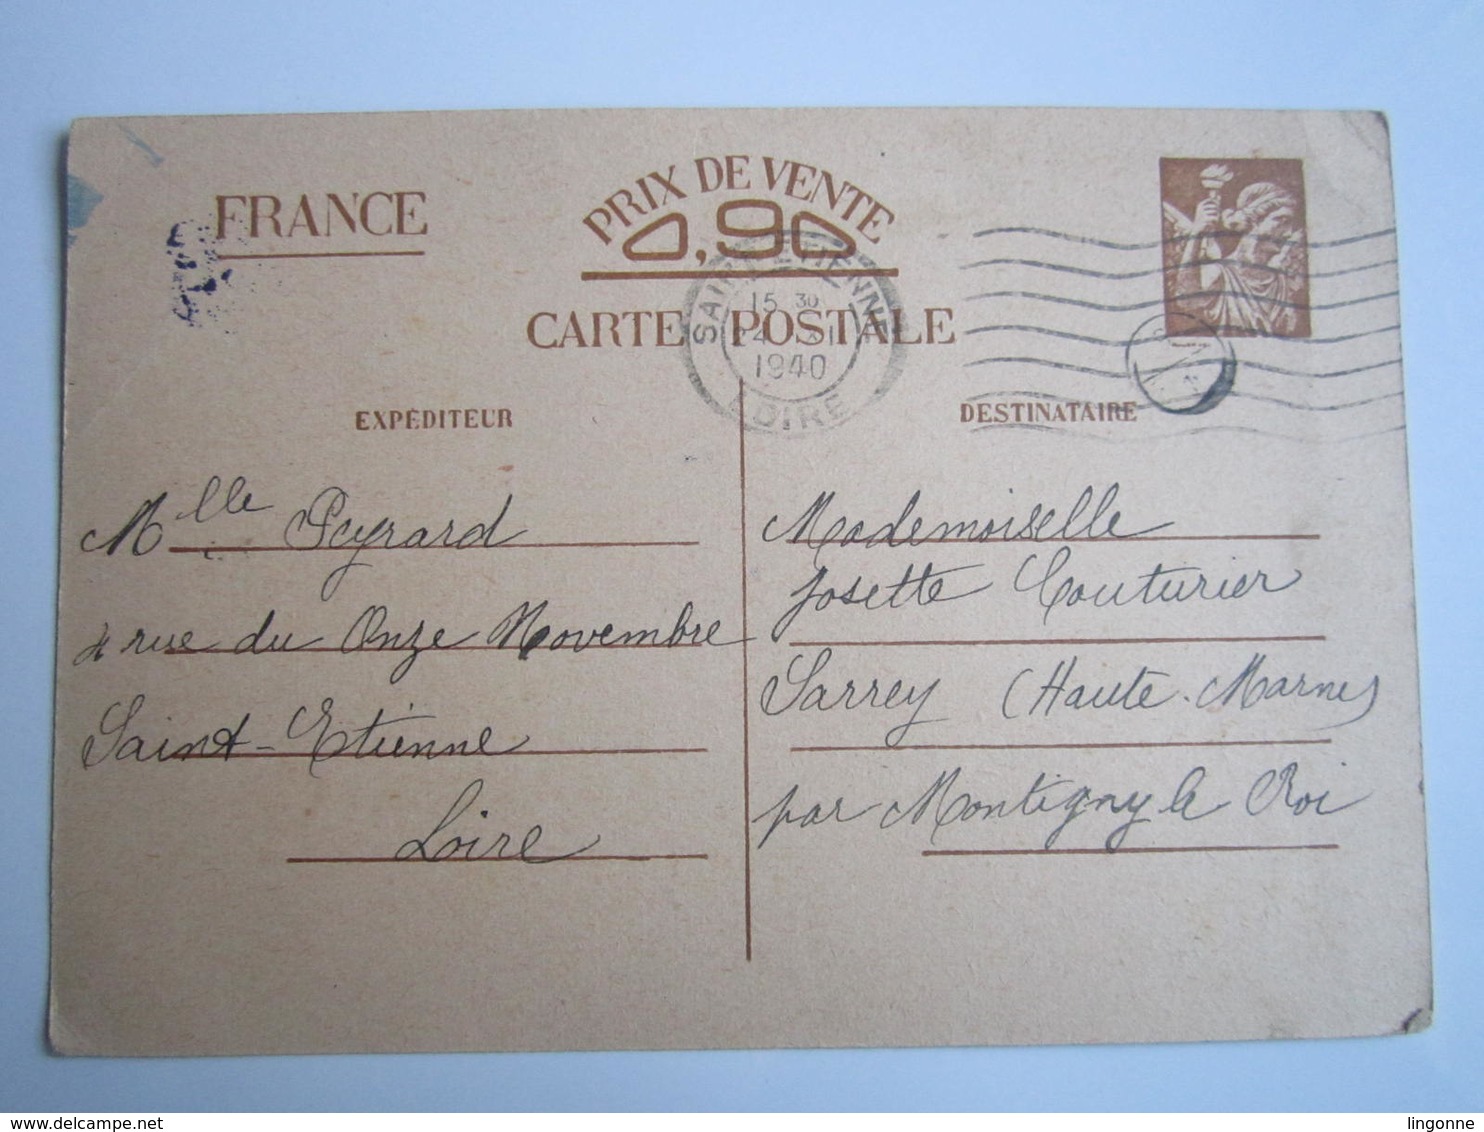 FRANCE
PRIX DE VENTE
0,90
CARTE POSTALE
SAINT-ETIENNE
15 30
24 XI
1940
LOIRE
EXPÉDITEUR
Mlle Peyrard
4 rue du Onze Novembre
Saint-Etienne
Loire
DESTINATAIRE
Mademoiselle
Josette Couturier
Sarrey (Haute-Marne)
par Montigny le Roi
www.delcampe.net
lingonne